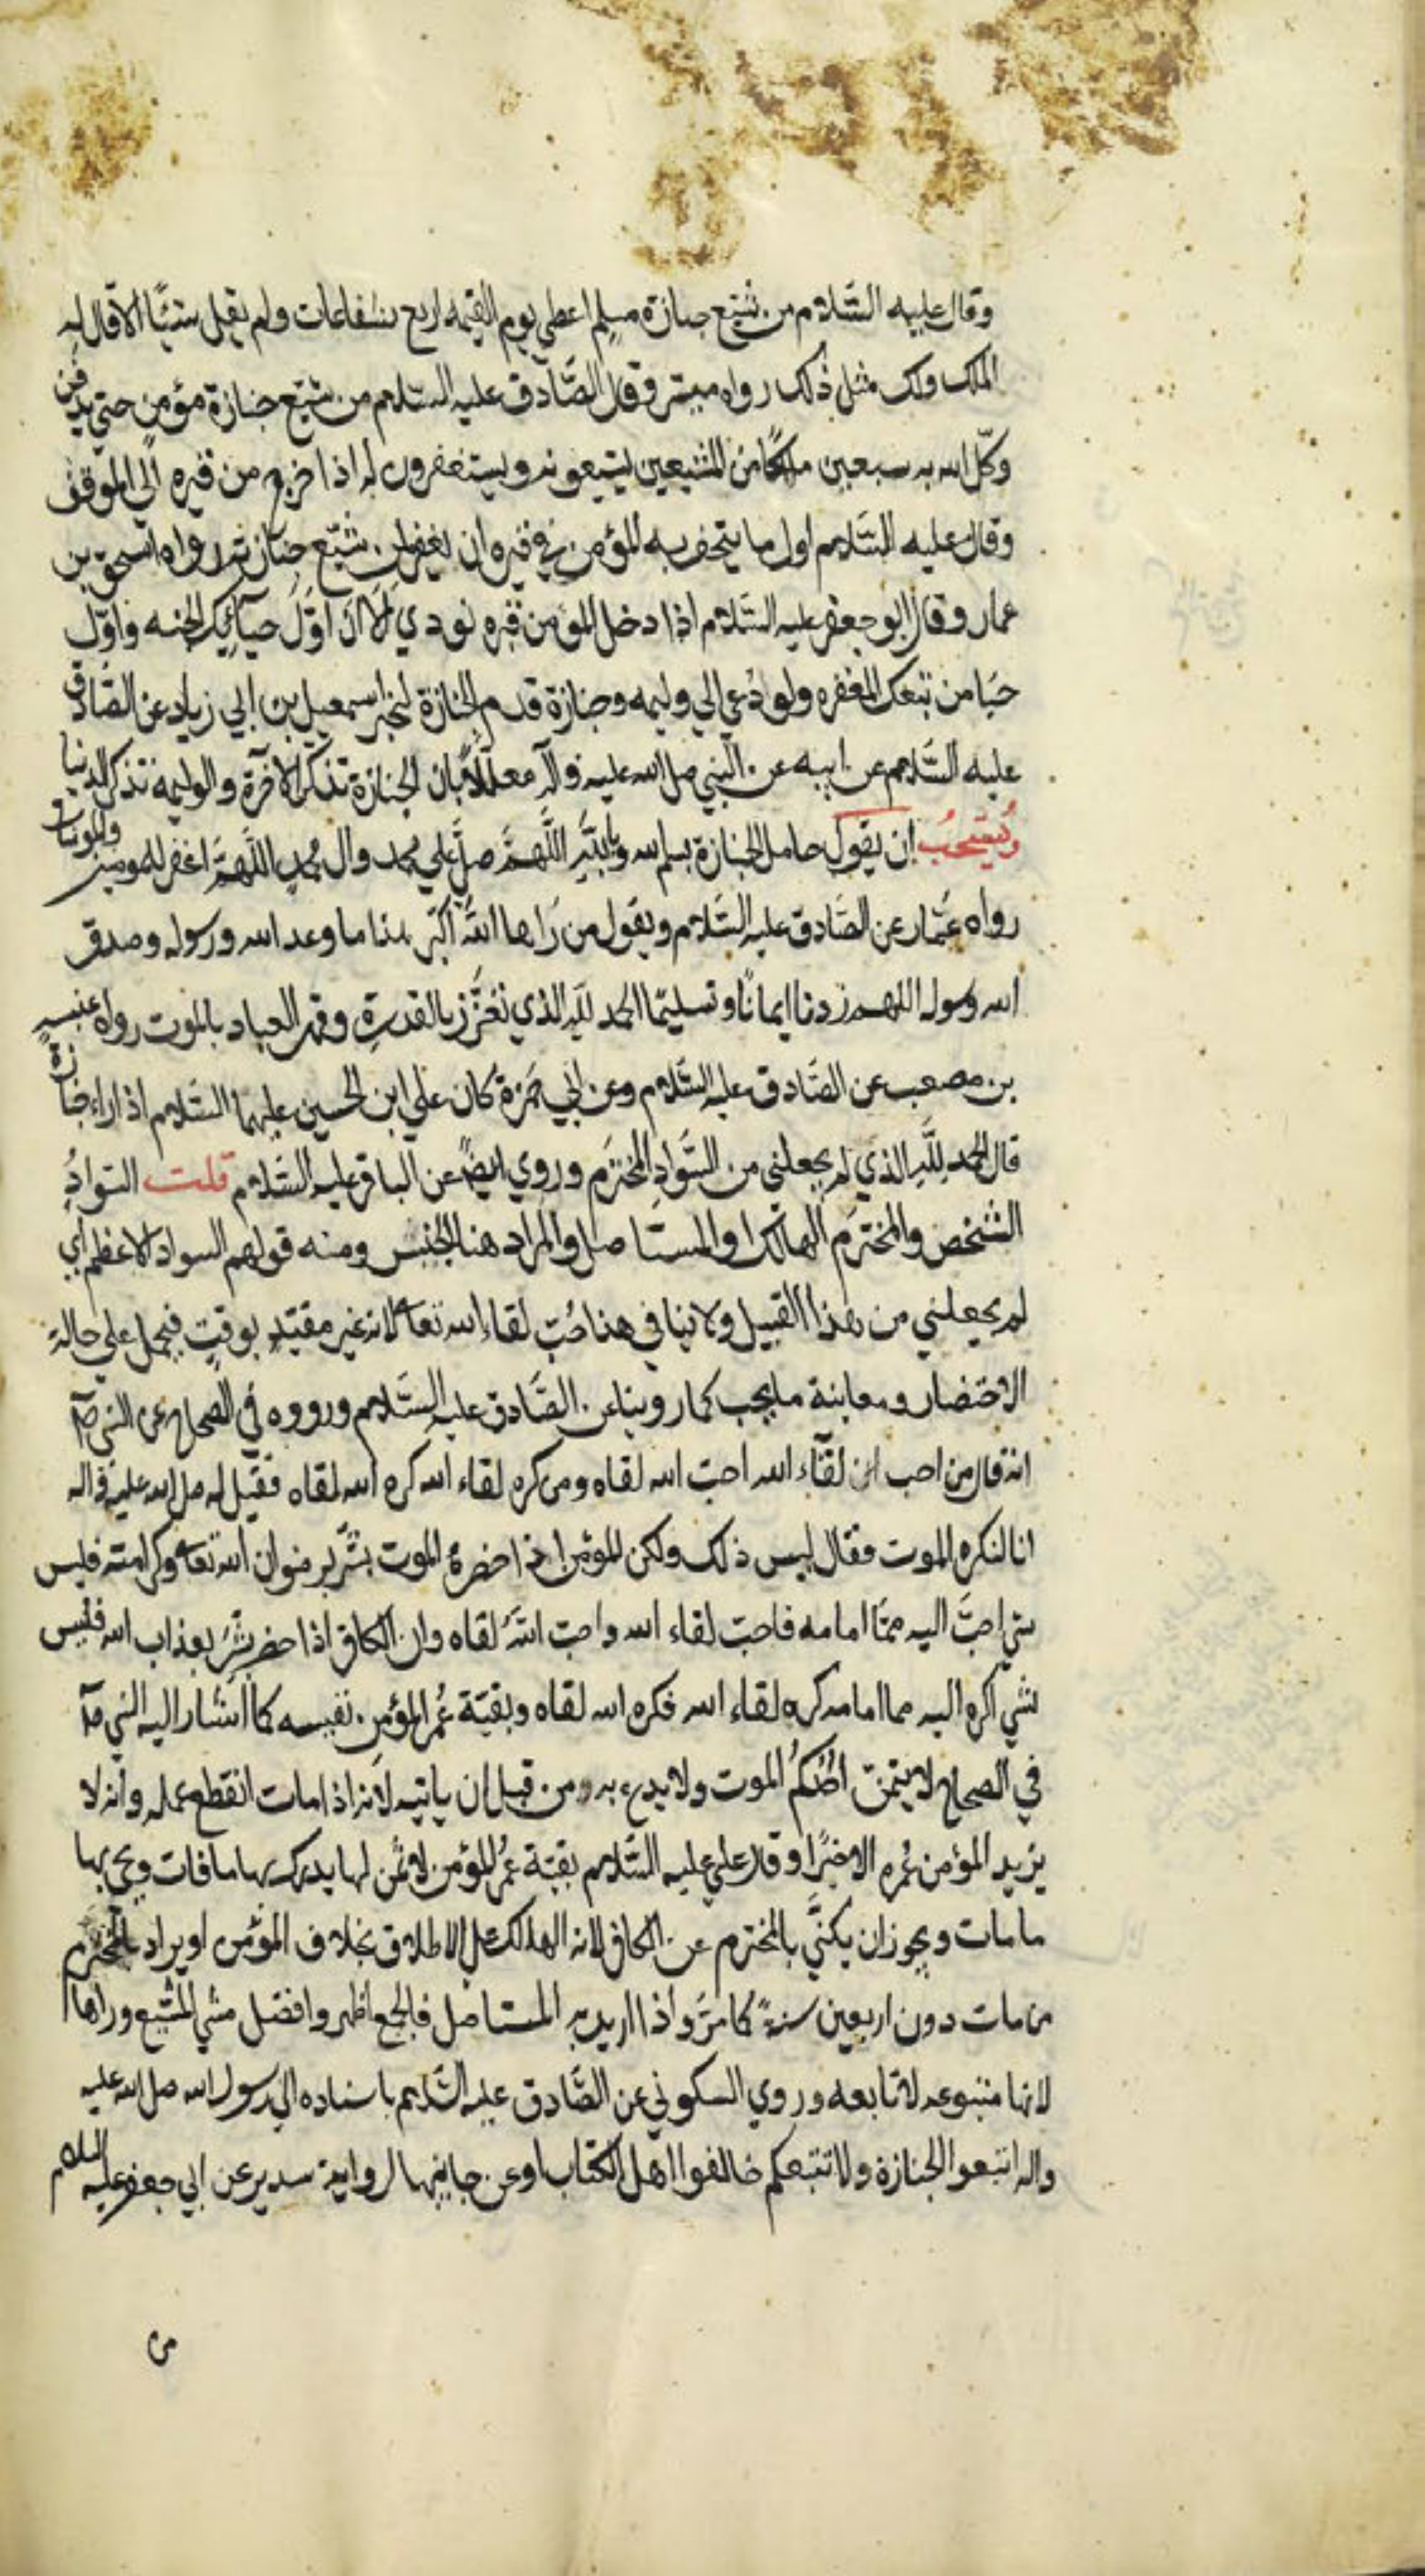 وقال عليه السَّلام من شيّع جنازة مسلم اعطي يوم القيمه اربع شفاعات ولم يقل شيئًا الا قال له
الملك ولك مثل ذلك رواه ميسر وقال الصَّادق عليه السلام من شيّع جنازة مؤمن حتي يدفن
وكّل الله به سبعين ملكًا من المشيعين يشيعونه ويستغفرون له اذا خرج من قبره الي الموقف
وقال عليه السَّلام اول ما يتحف به المؤمن في قبره ان يغفر لمن شيّع جنازته رواه اسحق بن
عمار وقال ابو جعفر عليه السَّلام اذا دخل المؤمن قبره نودي اَلَا اِنَّ اَوّلَ حبآئِك الجنه واوّل
حبَا من تبعك المغفره ولو دُعي الي وليمه وجنازة قدم الجنازة لخبر اسمعيل بن ابي زياد عن الصَّادق
عليه السَّلام عن ابيه عن النبي صلى الله عليه وآله معللًا بان الجنازة تذكر الآخرة والوليمه تذكر الدنيا
ويُستحب ان يقول حامل الجنازة بسم الله وبِاللهِ اللَّهمَّ صلِّ علي محمد وال محمدٍ اللَّهمَّ اغفر للمومنين والمومنات
رواه عَمَّار عن الصَّادق عليه السَّلام ويقول من رَاها اللهُ اكبَر هذا ما وعد الله ورسوله وصدق
الله ورسوله اللهم زدنا ايمانًا وتسليمًا الحمد للهِ الذي تعَزَّز بالقدرةِ وقهر العباد بالموت رواه عنبسه
بن مصعب عن الصَّادق عليه السَّلام وعن ابي حمَزة كان علي ابن الحسين عليهما السَّلام اذا راء جنازة
قال الحمد لِلَّهِ الذي لم يجعلني من السَّوادِ المخترَم وروي ايضًا عن الباقر عليه السَّلام قلت السَّوادُ
الشخص والمخترَم الهالك او المستاصل والمراد هنا الجنس ومنه قولهم السواد الاعظم اي
لم يجعلني من هذا القبيل ولا ينافي هذا حُبّ لقاء الله تعا لانه غير مقيّدٍ بوقتٍ فيحمل علي حالة
الاحتضار ومعاينة ما يحب كما روينا عن الصَّادق عليه السَّلام ورووه في الصحاح عن النبي صلّى
انه قال من احب لقآء الله احبّ الله لقاه ومن كره لقاء الله كره الله لقاه فقيل له صلى الله عليه واله
انا لنكره الموت فقال ليس ذلك ولكن المؤمن اذا حضرهُ الموت بشّر برضوان الله تعا وكرامته فليس
شي احبَّ اليه ممّا امامه فاحبّ لقاء الله واحبّ اللهُ لقاه وان الكافر اذا حضر بشّر بعذاب الله فليس
شي اكره اليه مما امامه كره لقاء الله فكره الله لقاه وبقيّة عُمر المؤمن نفيسه كما اشار اليه النبي صلّى
في الصحاح لا يتمنّ احدكُم الموت ولا يدع به من قبل ان ياتيه لاَنه اذا مات انقطع عمله وانه لا
يزيد المؤمن عُمره الا خيرًا وقال علي عليه السَّلام بقيّة عُمر المؤمن لا ثَمن لها يدرك بها ما فات ويحيي بها
ما مات ويجوز ان يكنَّي بالمخترم عن الكافر لانه الهالك علي الاطلاق بخلاف المؤمن او يراد بالمخترم
من مات دون اربعين سنةً كما مرَّ واذا اريد به المستاصل فالجمع اظهر وافضل مشي المشيّع وراها
لانها متبوعه لا تابعه وروي السكوني عن الصَّادق عليه السَّلام باسناده الي رسول الله صلى الله عليه
واله اتبعوا الجنازة ولا تتبعكم خالفوا اهل الكتاب او عن جانبيها لرواية سدير عن ابي جعفر عليه السلام
من